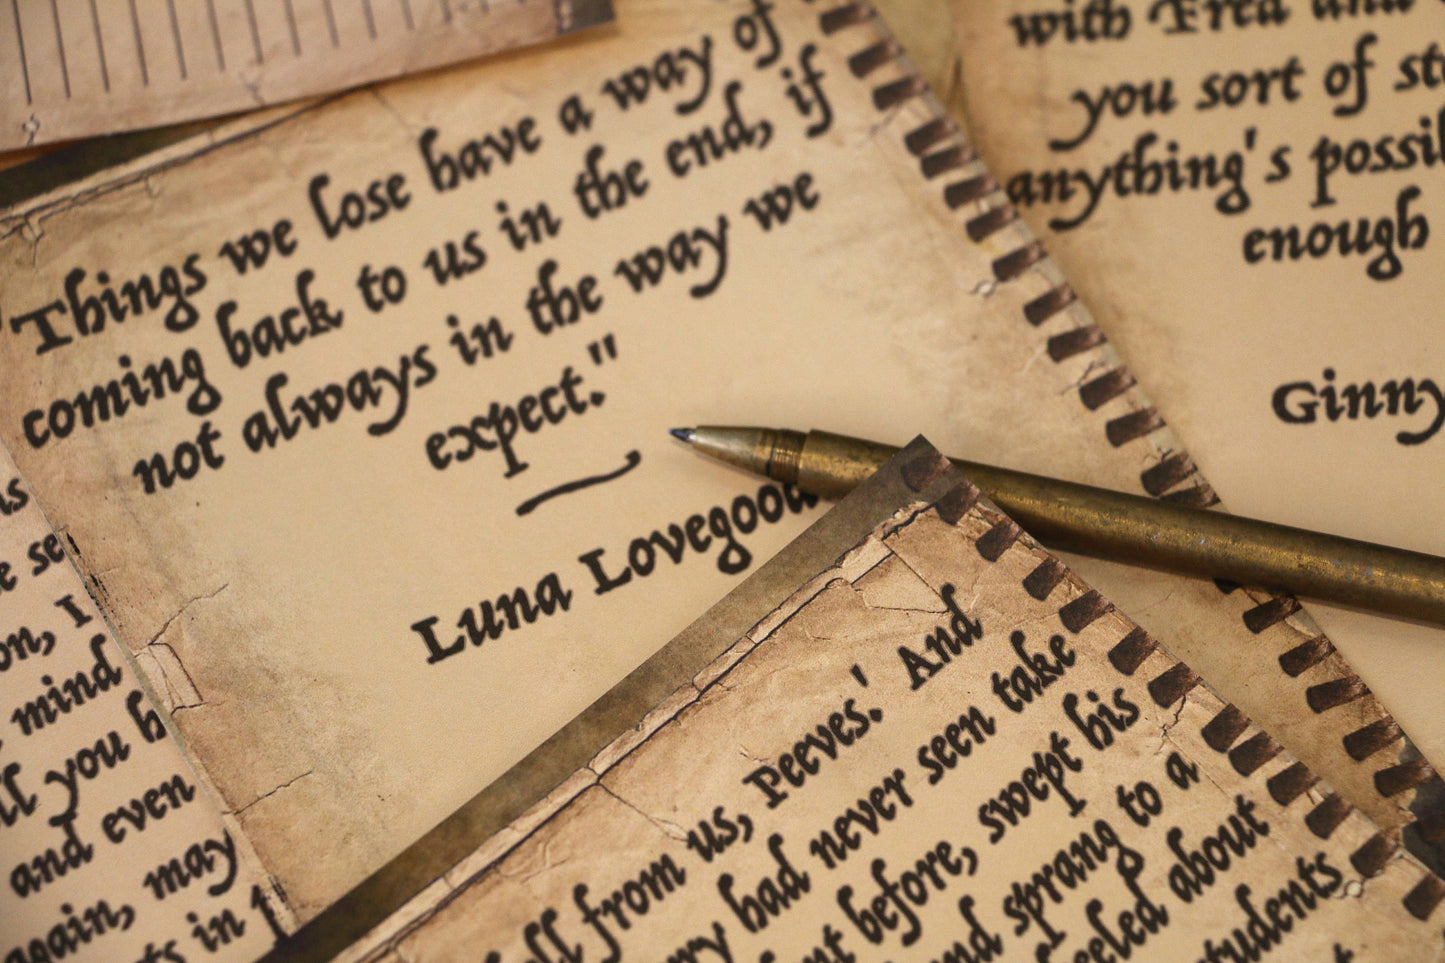 Things we lose have a way of
coming back to us in the end, if
not always in the way we
expect."
Luna Lovegood
with Fred and
you sort of
anything's
enough
Ginny
I
mind
you
and even
again, may
in
from us, Peeves.' And
had never seen take
before, swept his
sprang to a
about